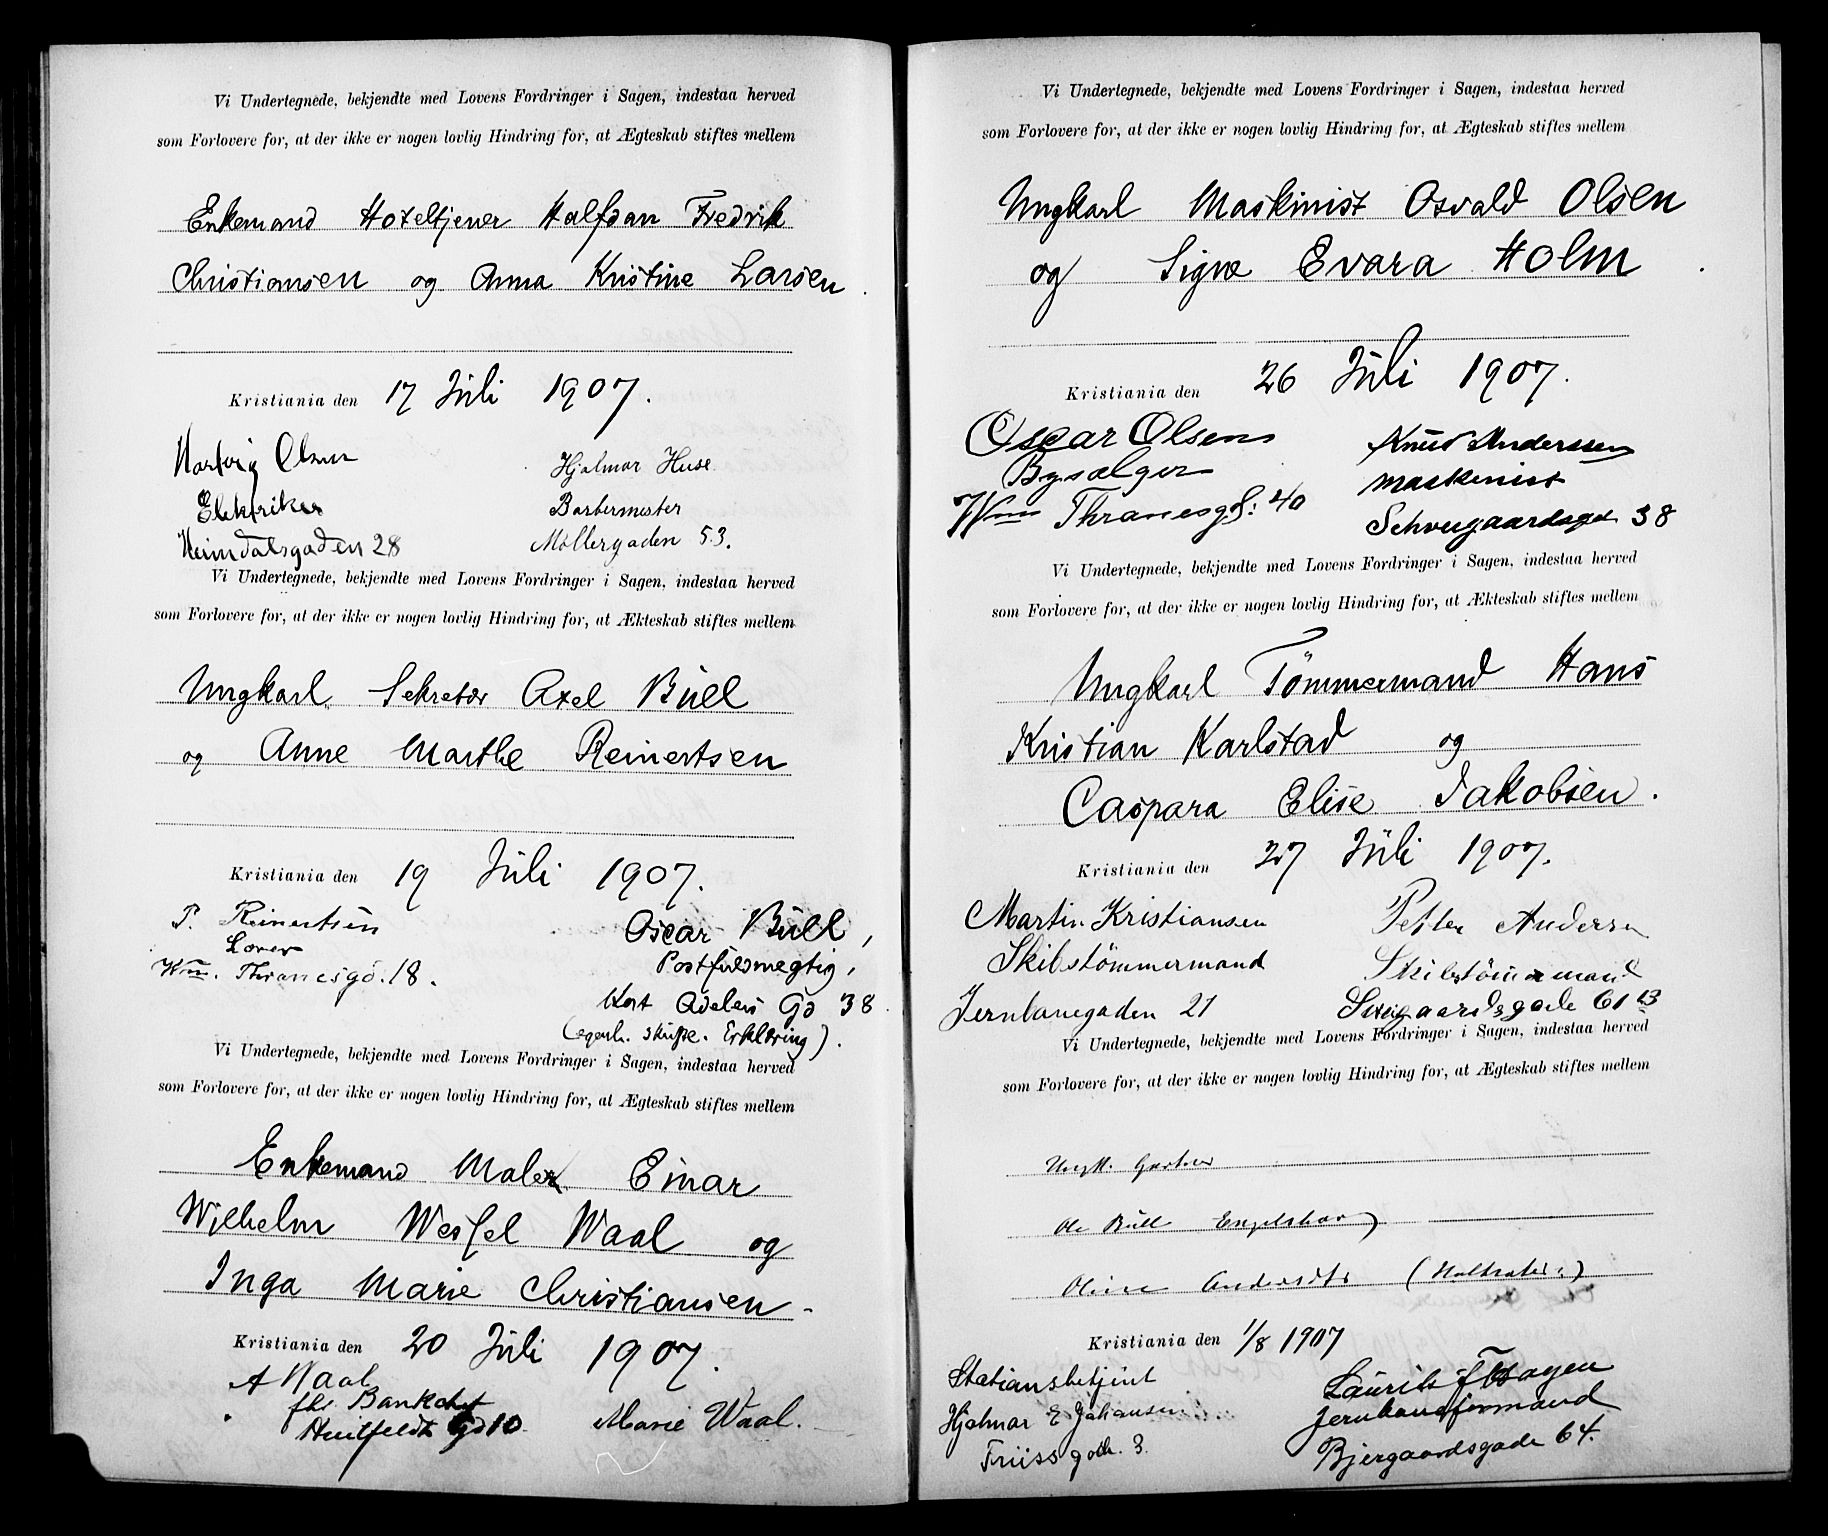 Vi Undertegnede, bekjendte med Lovens Fordringer i Sagen, indestaa herved
som Forlovere for, at der ikke er nogen lovlig Hindring for, at Ægteskab stiftes mellem
Enkemand Hoteltjener Halfdan Fredrik
Christiansen og Anna Kristine Larsen.
Kristiania den 17 Juli 1907.
Hartvig Olsen
Elektriker
Heimdalsgaden 28
Hjalmar Huse
Barbermester
Møllergaden 53.
Vi Undertegnede, bekjendte med Lovens Fordringer i Sagen, indestaa herved
som Forlovere for, at der ikke er nogen lovlig Hindring for, at Ækteskab stiftes mellem
Ungkarl Sekretær Axel Büll
og Anne Marthe Reinertsen
Kristiania den 19 Juli 1907.
P. Reinertsen
Wm. Thranesgd. 18.
Oscar Büll,
Postfuldmegtig,
Kort Adelers Gd 38.
(egenh. skriftl. Erklæring).
Vi Undertegnede, bekjendte med Lovens Fordringer i Sagen, indestaa herved
som Forlovere for, at der ikke er nogen lovlig Hindring for, at Ægteskab stiftes mellem
Enkemand Maler Einar
Wilhelm Wessel Waal og
Inga Marie Christiansen.
Kristiania den 20 Juli 1907.
A Waal
fhv. Bankchef
Huitfeldts Gd 10
Marie Waal.
Vi Undertegnede, bekjendte med Lovens Fordringer i Sagen, indestaa herved
som Forlovere for, at der ikke er nogen lovlig Hindring for, at Ægteskab stiftes mellem
Ungkarl Maskinist Osvald Olsen
og Signe Evara Holm.
Kristiania den 26 Juli 1907.
Oscar Olsen
Bysælger
Wm Thranesgd: 40
Knut Anderssen
Maskinist
Schweigaardsgd. 38
Vi Undertegnede, bekjendte med Lovens Fordringer i Sagen, indestaa herved
som Forlovere for, at der ikke er nogen lovlig Hindring for, at Ækteskab stiftes mellem
Ungkarl Tömmermand Hans
Kristian Karlstad og
Caspara Elise Jakobsen.
Kristiania den 27 Juli 1907.
Martin Kristiansen
Skibstömmermand
Jernbanegaden 21
Petter Andersen
Skibstömmermand
Sveigaardsgade 61 B
Vi Undertegnede, bekjendte med Lovens Fordringer i Sagen, indestaa herved
som Forlovere for, at der ikke er nogen lovlig Hindring for, at Ægteskab stiftes mellem
Ungk. Gartner
Ole Bull
Kristiania den 1/8 1907
Stationsbetjent
Hjalmar E Johansen
Friisgade. 3.
Laurits Hagen
Jernbaneformand
Bjergaardsgade 64.